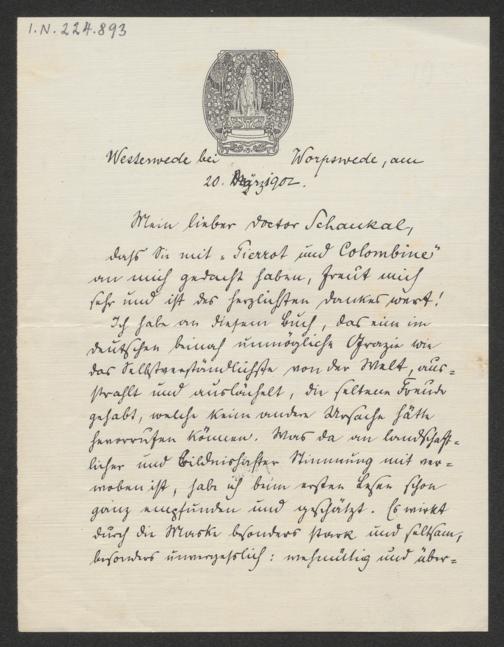 I.N. 224.893
Westerwede bei Worpswede, am
20. März 1902.
Mein lieber Doctor Schaukal,
daß Sie mit „Pierrot und Colombine"
an mich gedacht haben, freut mich
sehr und ist des herzlichsten Dankes wert!
Ich habe an diesem Buch, das eine im
Deutschen beinah unmögliche Grazie wie
das Selbstverständlichste von der Welt, aus-
strahlt und auslächelt, die seltene Freude
gehabt, welche keine andere Ursache hätte
hervorrufen können. Was da an landschaft-
licher und bildnishafter Stimmung mit ver-
woben ist, habe ich beim ersten Lesen schon
ganz empfunden und geschätzt. Es wirkt
durch die Maske besonders stark und seltsam,
besonders unvergesslich: wehmüttig und über-